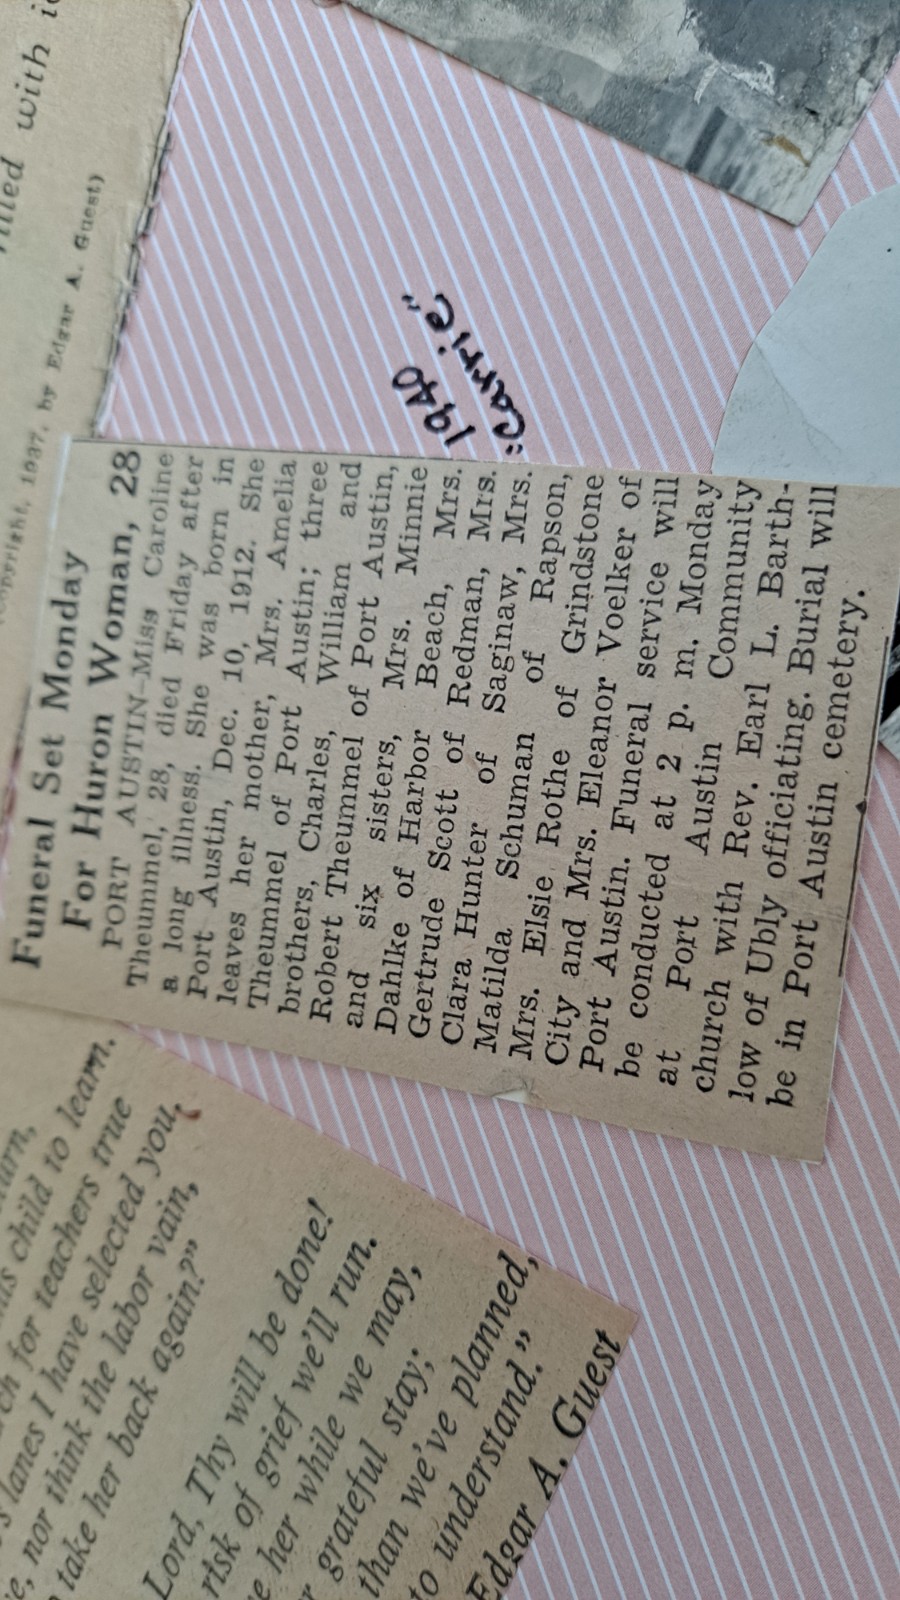 filled with
Copyright, 1937, by Edgar A. Guest)
1940
"Carrie"
Funeral Set Monday
For Huron Woman, 28
PORT AUSTIN—Miss Caroline
Theummel, 28, died Friday after
a long illness. She was born in
Port Austin, Dec. 10, 1912. She
leaves her mother, Mrs. Amelia
Theummel of Port Austin; three
brothers, Charles, William and
Robert Theummel of Port Austin,
and six sisters, Mrs. Minnie
Dahlke of Harbor Beach, Mrs.
Gertrude Scott of Redman, Mrs.
Clara Hunter of Saginaw, Mrs.
Matilda Schuman of Rapson,
Mrs. Elsie Rothe of Grindstone
City and Mrs. Eleanor Voelker of
Port Austin. Funeral service will
be conducted at 2 p. m. Monday
at Port Austin Community
church with Rev. Earl L. Barth-
low of Ubly officiating. Burial will
be in Port Austin cemetery.
child to learn.
for teachers true
lanes I have selected you,
nor think the labor vain,
take her back again?"
Lord, Thy will be done!
risk of grief we'll run.
her while we may,
grateful stay;
than we've planned,
to understand."
Edgar A. Guest